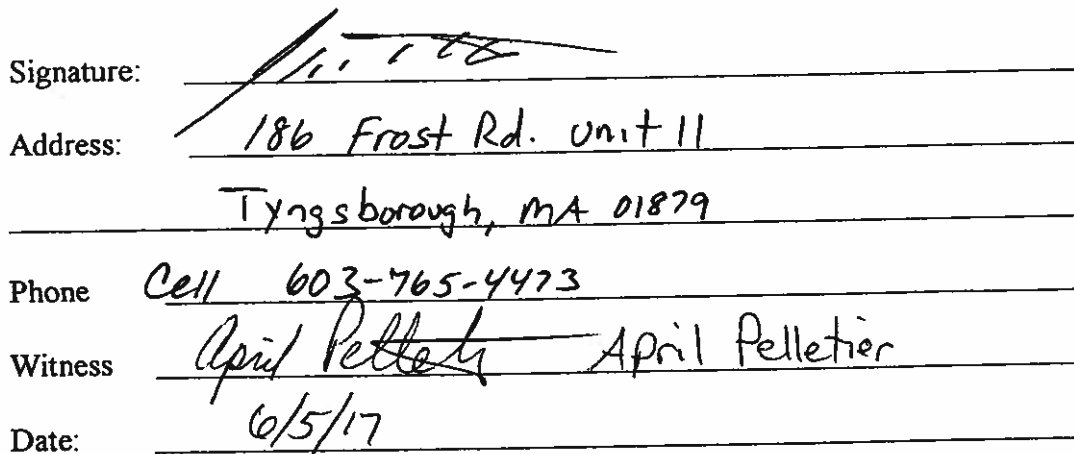 Signature:
Address: 186 Frost Rd. unit 11
Tyngsborough, MA 01879
Phone Cell 603-765-4473
Witness April Pelletier April Pelletier
Date: 6/5/17